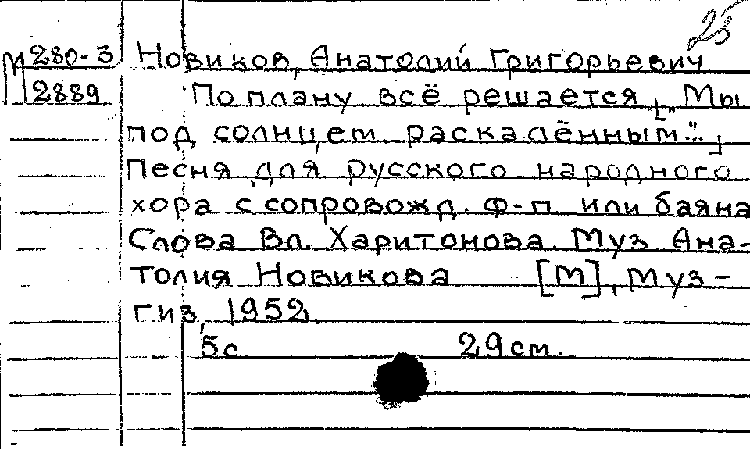 25
М 280-3 Новиков, Анатолий Григорьевич
2889 По плану всё решается, ["Мы
под солнцем раскалённым.."]
Песня для русского народного
хора с сопровожд. ф-п или баяна
Слова Вл. Харитонова. Муз Ана-
толия Новикова [М], Муз-
гиз, 1952
5с 29см.